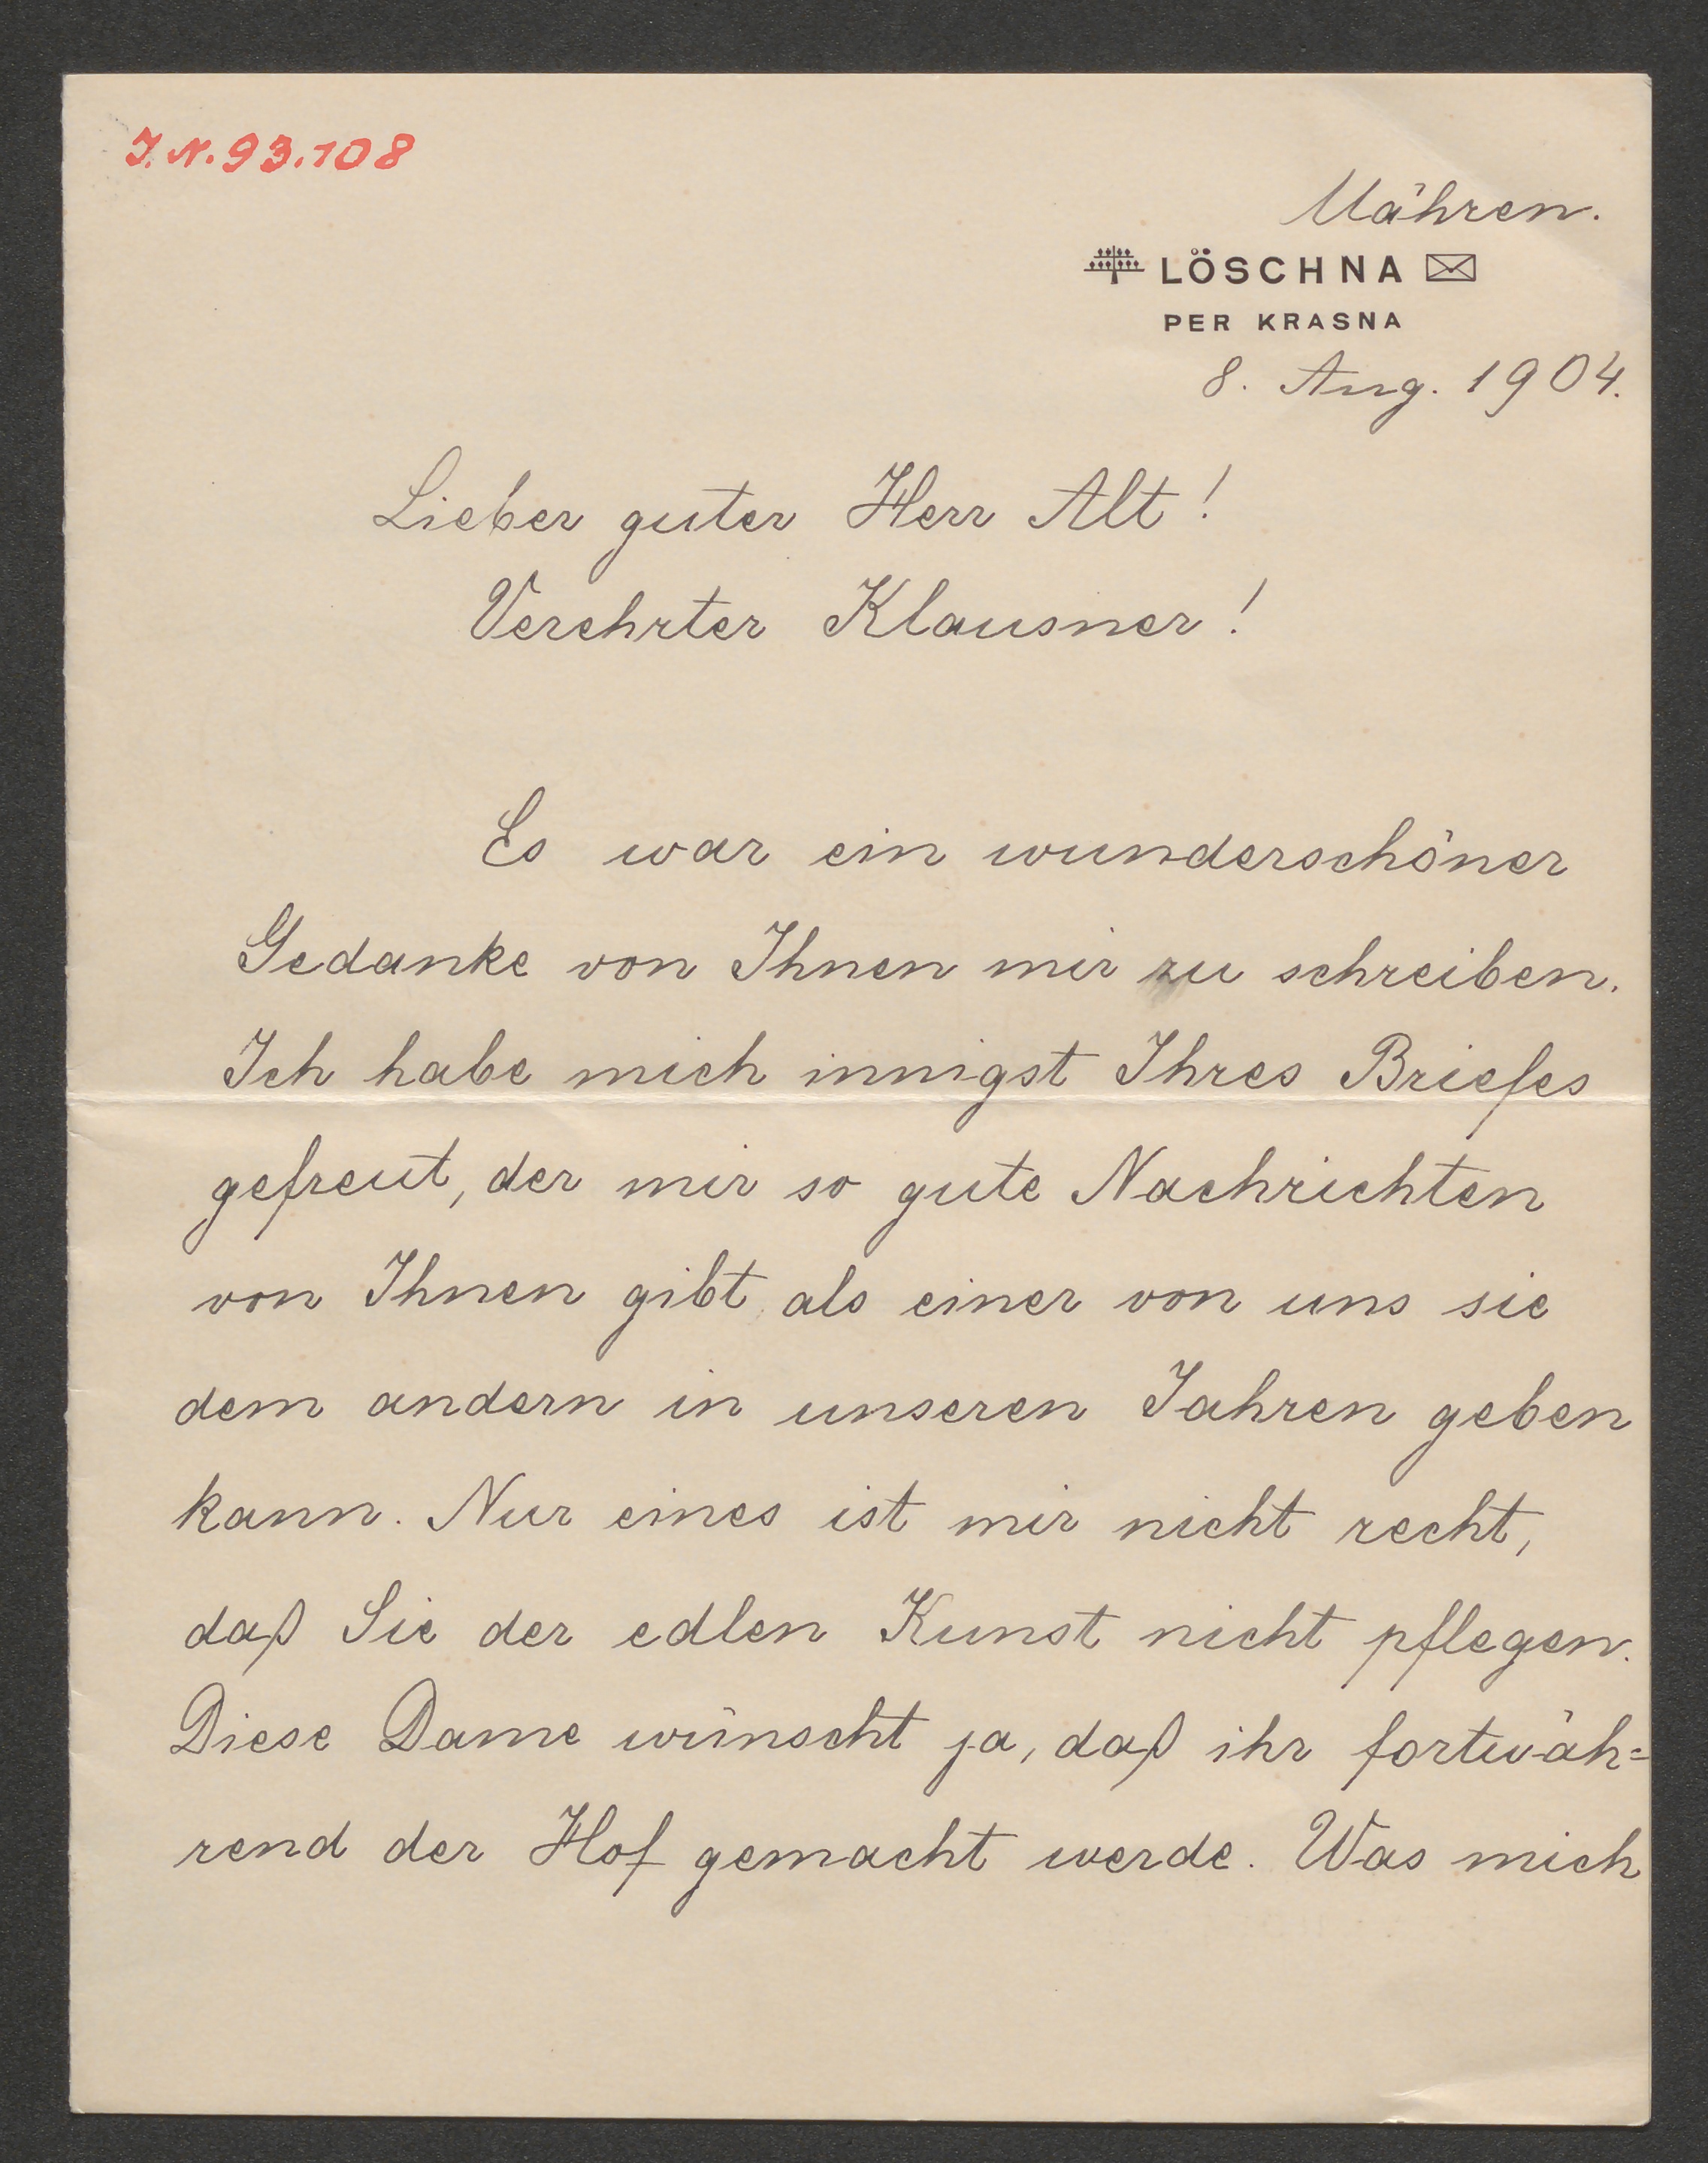 J.N. 93.108
Mähren.
LÖSCHNA
PER KRASNA
8. Aug. 1904.
Lieber guter Herr Alt!
Verehrter Klausner!
Es war ein wunderschöner
Gedanke von Ihnen mir zu schreiben.
Ich habe mich innigst Ihres Briefes
gefreut, der mir so gute Nachrichten
von Ihnen gibt als einer von uns sie
dem andern in unseren Jahren geben
kann. Nur eines ist mir nicht recht,
daß Sie der edlen Kunst nicht pflegen.
Diese Dame wünscht ja, daß ihr fortwäh=
rend der Hof gemacht werde. Was mich